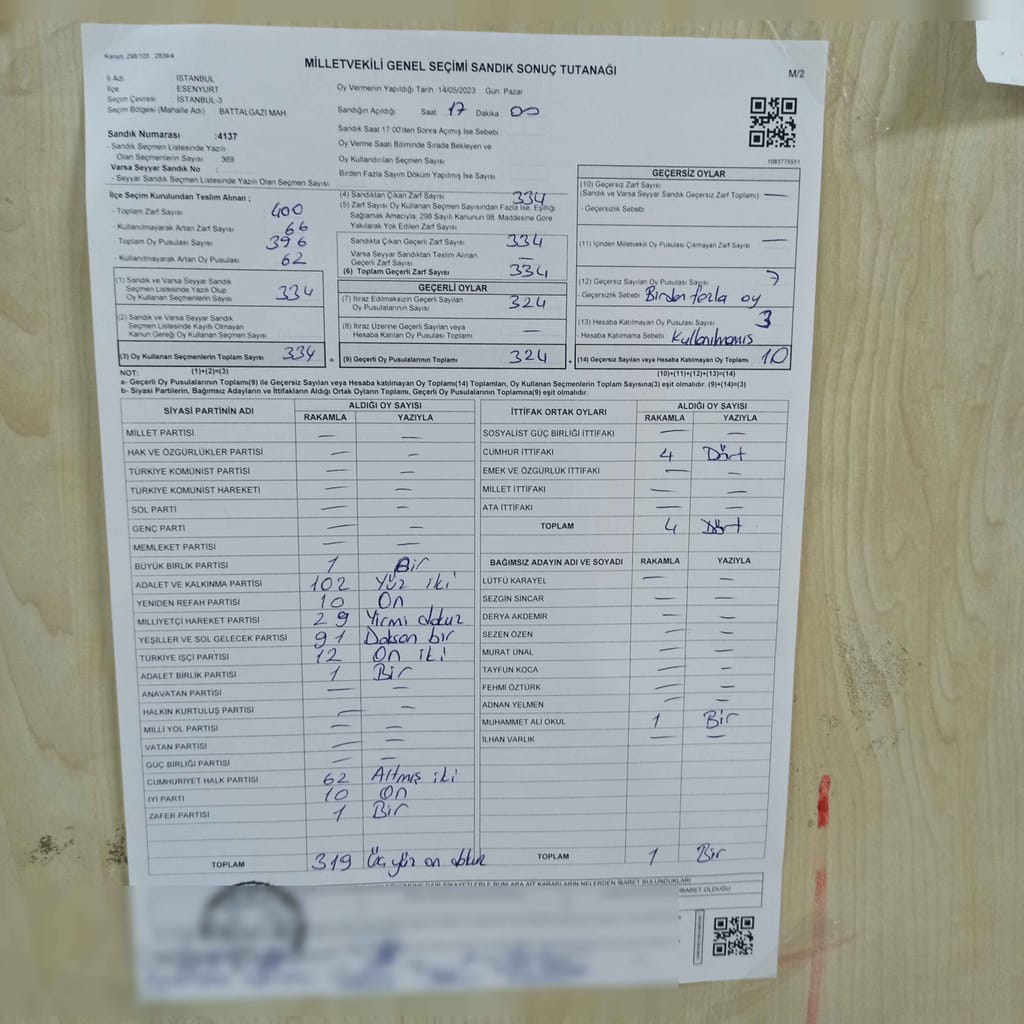 Kanun: 298/105 , 2839/4
MİLLETVEKİLİ GENEL SEÇİMİ SANDIK SONUÇ TUTANAĞI
M/2
İl Adı : İSTANBUL
İlçe : ESENYURT
Seçim Çevresi : İSTANBUL-3
Seçim Bölgesi (Mahalle Adı) : BATTALGAZİ MAH
Oy Vermenin Yapıldığı Tarih 14/05/2023 Gün Pazar
Sandığın Açıldığı Saat 17 Dakika 00
Sandık Saat 17.00'den Sonra Açılmış İse Sebebi
Oy Verme Saati Bitiminde Sırada Bekleyen ve
Oy Kullandırılan Seçmen Sayısı
Birden Fazla Sayım Döküm Yapılmış İse Sayısı
Sandık Numarası :4137
- Sandık Seçmen Listesinde Yazılı
Olan Seçmenlerin Sayısı : 369
Varsa Seyyar Sandık No :
- Seyyar Sandık Seçmen Listesinde Yazılı Olan Seçmen Sayısı:
1083775551
İlçe Seçim Kurulundan Teslim Alınan ;
- Toplam Zarf Sayısı 400
- Kullanılmayarak Artan Zarf Sayısı 66
- Toplam Oy Pusulası Sayısı 396
- Kullanılmayarak Artan Oy Pusulası 62
(1) Sandık ve Varsa Seyyar Sandık
Seçmen Listesinde Yazılı Olup
Oy Kullanan Seçmenlerin Sayısı 334
(2) Sandık ve Varsa Seyyar Sandık
Seçmen Listesinde Kaydı Olmayan
Kanun Gereği Oy Kullanan Seçmen Sayısı
(3) Oy Kullanan Seçmenlerin Toplam Sayısı 334
(1)+(2)=(3)
(4) Sandıktan Çıkan Zarf Sayısı 334
(5) Zarf Sayısı Oy Kullanan Seçmen Sayısından Fazla İse, Eşitliği
Sağlamak Amacıyla; 298 Sayılı Kanunun 98. Maddesine Göre
Yakılarak Yok Edilen Zarf Sayısı
Sandıkta Çıkan Geçerli Zarf Sayısı 334
Varsa Seyyar Sandıktan Teslim Alınan
Geçerli Zarf Sayısı —
(6) Toplam Geçerli Zarf Sayısı 334
GEÇERLİ OYLAR
(7) İtiraz Edilmeksizin Geçerli Sayılan
Oy Pusulalarının Sayısı 324
(8) İtiraz Üzerine Geçerli Sayılan veya
Hesaba Katılan Oy Pusulası Toplamı —
(9) Geçerli Oy Pusulalarının Toplamı 324
GEÇERSİZ OYLAR
(10) Geçersiz Zarf Sayısı
(Sandık ve Varsa Seyyar Sandık Geçersiz Zarf Toplamı) —
- Geçersizlik Sebebi
(11) İçinden Milletvekili Oy Pusulası Çıkmayan Zarf Sayısı —
(12) Geçersiz Sayılan Oy Pusulası Sayısı 7
- Geçersizlik Sebebi Birden fazla oy
(13) Hesaba Katılmayan Oy Pusulası Sayısı 3
- Hesaba Katılmama Sebebi Kullanılmamış
(14) Geçersiz Sayılan veya Hesaba Katılmayan Oy Toplamı 10
(10)+(11)+(12)+(13)=(14)
NOT:
a- Geçerli Oy Pusulalarının Toplamı(9) ile Geçersiz Sayılan veya Hesaba katılmayan Oy Toplamı(14) Toplamları, Oy Kullanan Seçmenlerin Toplam Sayısına(3) eşit olmalıdır. (9)+(14)=(3)
b- Siyasi Partilerin, Bağımsız Adayların ve İttifakların Aldığı Ortak Oyların Toplamı, Geçerli Oy Pusulalarının Toplamına(9) eşit olmalıdır.
SİYASİ PARTİNİN ADI
ALDIĞI OY SAYISI
RAKAMLA YAZIYLA
MİLLET PARTİSİ — —
HAK VE ÖZGÜRLÜKLER PARTİSİ — —
TÜRKİYE KOMÜNİST PARTİSİ — —
TÜRKİYE KOMÜNİST HAREKETİ — —
SOL PARTİ — —
GENÇ PARTİ — —
MEMLEKET PARTİSİ — —
BÜYÜK BİRLİK PARTİSİ 1 Bir
ADALET VE KALKINMA PARTİSİ 102 Yüz iki
YENİDEN REFAH PARTİSİ 10 On
MİLLİYETÇİ HAREKET PARTİSİ 29 Yirmi dokuz
YEŞİLLER VE SOL GELECEK PARTİSİ 91 Doksan bir
TÜRKİYE İŞÇİ PARTİSİ 12 On iki
ADALET BİRLİK PARTİSİ 1 Bir
ANAVATAN PARTİSİ — —
HALKIN KURTULUŞ PARTİSİ — —
MİLLİ YOL PARTİSİ — —
VATAN PARTİSİ — —
GÜÇ BİRLİĞİ PARTİSİ — —
CUMHURİYET HALK PARTİSİ 62 Altmış iki
İYİ PARTİ 10 On
ZAFER PARTİSİ 1 Bir
TOPLAM 319 Üç yüz on dokuz
İTTİFAK ORTAK OYLARI
ALDIĞI OY SAYISI
RAKAMLA YAZIYLA
SOSYALİST GÜÇ BİRLİĞİ İTTİFAKI — —
CUMHUR İTTİFAKI 4 Dört
EMEK VE ÖZGÜRLÜK İTTİFAKI — —
MİLLET İTTİFAKI — —
ATA İTTİFAKI — —
TOPLAM 4 Dört
BAĞIMSIZ ADAYIN ADI VE SOYADI RAKAMLA YAZIYLA
LÜTFÜ KARAYEL — —
SEZGİN SİNCAR — —
DERYA AKDEMİR — —
SEZEN ÖZEN — —
MURAT ÜNAL — —
TAYFUN KOCA — —
FEHMİ ÖZTÜRK — —
ADNAN YELMEN — —
MUHAMMET ALİ OKUL 1 Bir
İLHAN VARLIK — —
TOPLAM 1 Bir